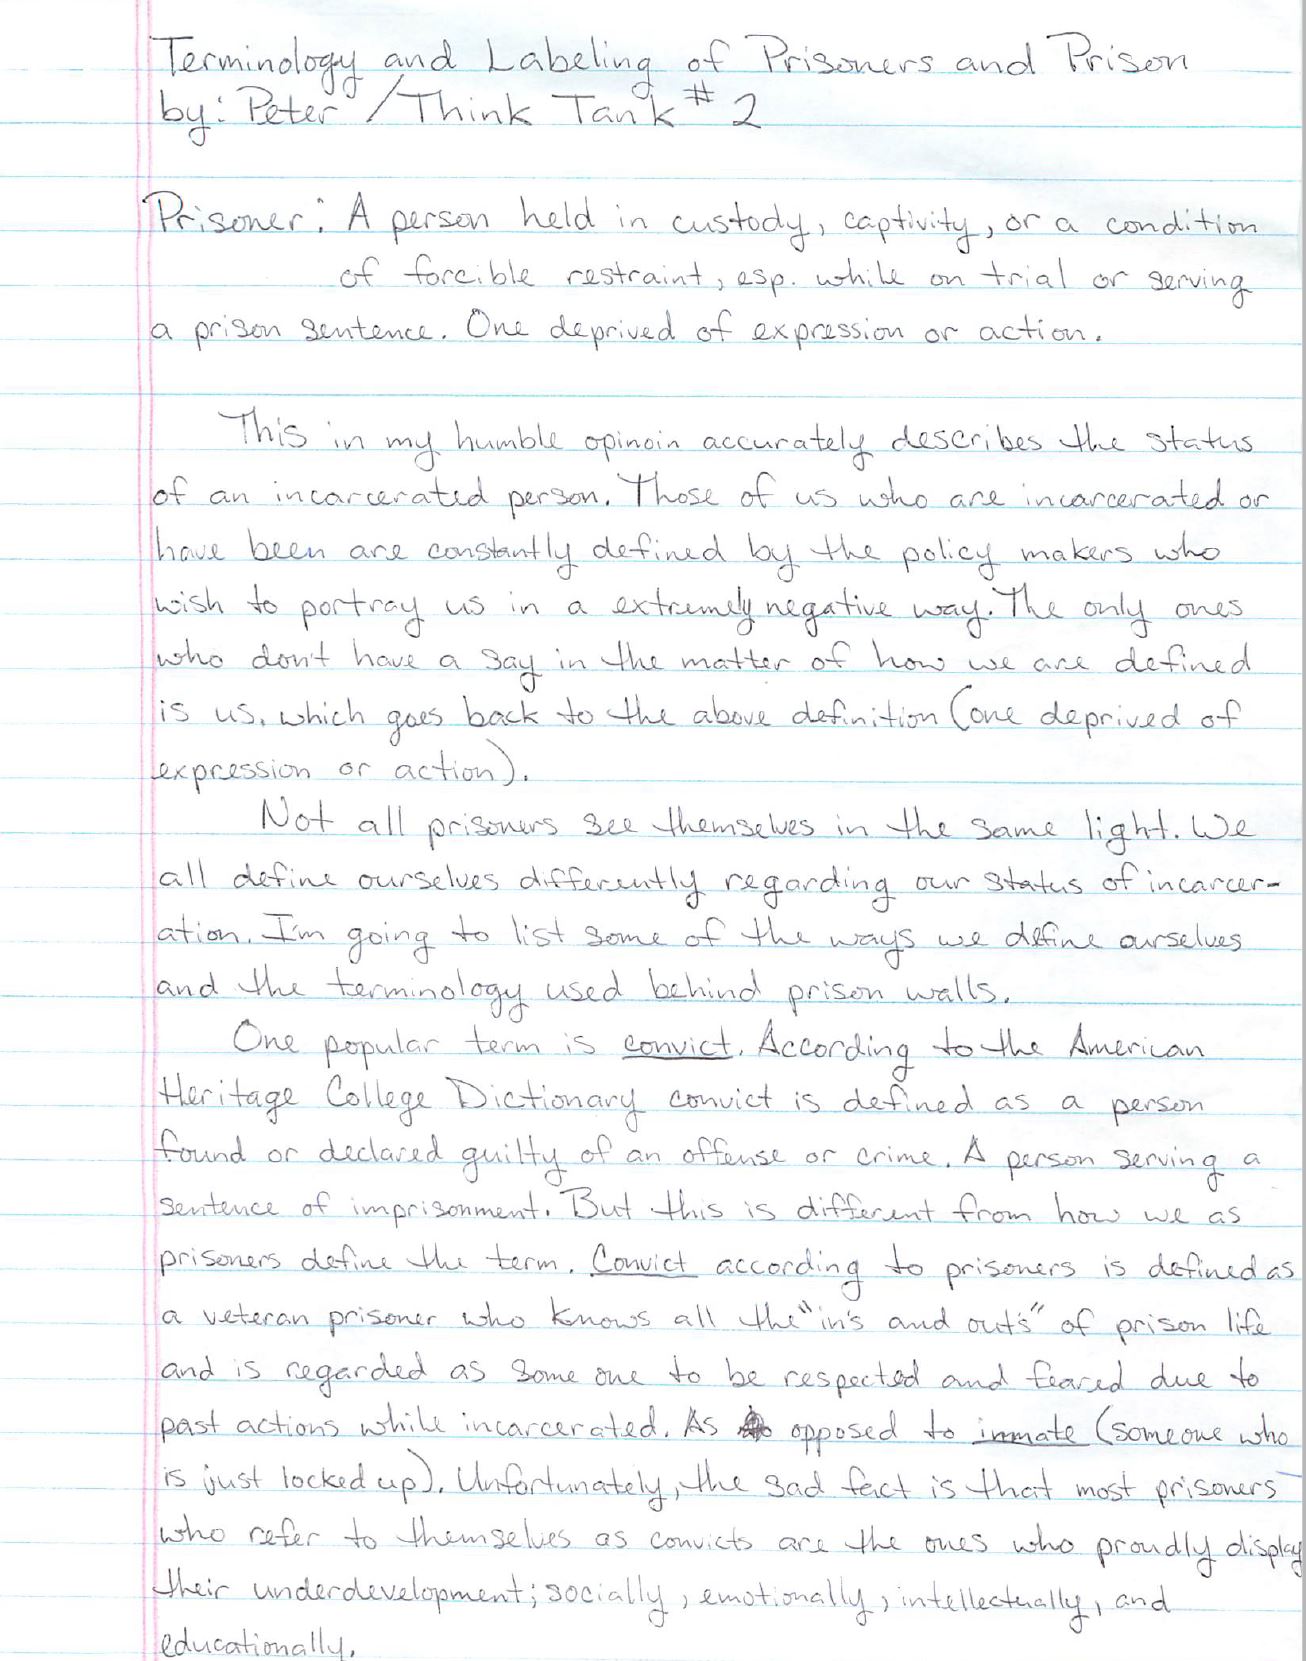 Terminology and Labeling of Prisoners and Prison
by: Peter / Think Tank # 2
Prisoner: A person held in custody, captivity, or a condition
of forcible restraint, esp. while on trial or serving
a prison sentence. One deprived of expression or action.
This in my humble opinoin accurately describes the status
of an incarcerated person. Those of us who are incarcerated or
have been are constantly defined by the policy makers who
wish to portray us in a extremely negative way. The only ones
who don't have a say in the matter of how we are defined
is us, which goes back to the above definition (one deprived of
expression or action).
Not all prisoners see themselves in the same light. We
all define ourselves differently regarding our status of incarcer-
ation. I'm going to list some of the ways we define ourselves
and the terminology used behind prison walls.
One popular term is convict. According to the American
Heritage College Dictionary convict is defined as a person
found or declared guilty of an offense or crime. A person serving a
sentence of imprisonment. But this is different from how we as
prisoners define the term. Convict according to prisoners is defined as
a veteran prisoner who knows all the "in's and out's" of prison life
and is regarded as some one to be respected and feared due to
past actions while incarcerated. As opposed to inmate (someone who
is just locked up). Unfortunately, the sad fact is that most prisoners
who refer to themselves as convicts are the ones who proudly display
their underdevelopment; socially, emotionally, intellectually, and
educationally.